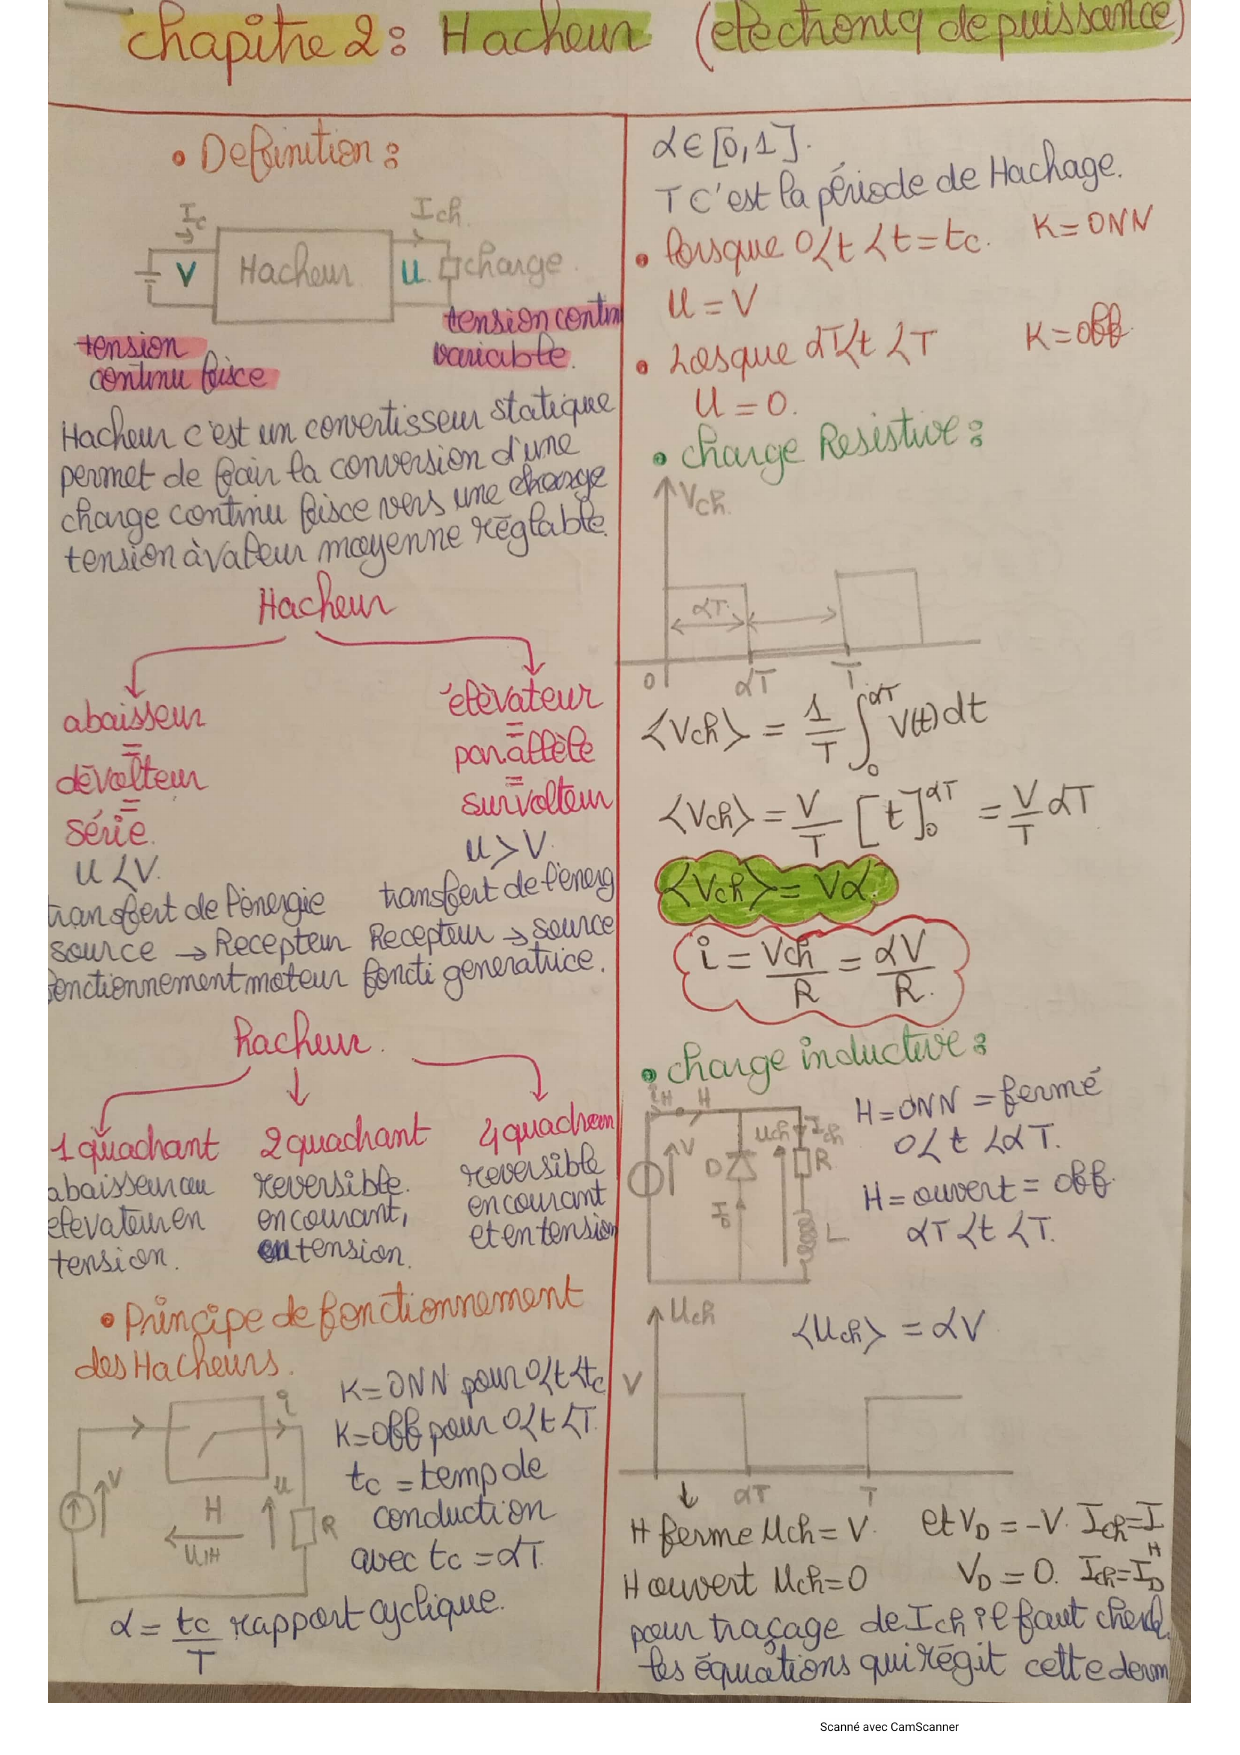 chapitre 2 : Hacheur (electroniq de puissance)
• Definition :
Ic
V
Hacheur
Ich
U
charge
tension continu
variable.
tension
continu fisce
Hacheur c'est un convertisseur statique
permet de fair la conversion d'une
charge continu fisce vers une charge
tension à valeur moyenne réglable.
Hacheur
abaisseur
=
dévolteur
=
série.
U < V.
transfert de l'énergie
source → Recepteur
fonctionnement moteur
élèvateur
=
parallèle
=
survolteur
U > V
transfert de l'énerg
Recepteur → source
foncti generatrice.
hacheur.
1 quachant
abaisseur ou
elevateur en
tension.
2 quachant
reversible.
en courant,
en tension.
4 quachan
reversible
en courant
et en tension
• Principe de fonctionnement
des Hacheurs.
i
V
H
UH
u
R
K = ONN pour 0<t<tc
K = off pour 0<t<T.
tc = temp de
conduction
avec tc = αT.
α = tc/T rapport cyclique.
α ∈ [0,1].
T c'est la période de Hachage.
• lorsque 0<t<t=tc. K = ONN
U = V
• Losque αT<t<T K = off
U = 0.
• charge Resistive :
Vch.
αT
0 αT T
<Vch> = 1/T ∫₀^αT V(t) dt
<Vch> = V/T [t]₀^αT = V/T αT
<Vch> = Vα.
i = Vch/R = αV/R.
• charge inductive :
iH H
V
D
ID
Uch
Ich
R
L
H = ONN = fermé
0<t<αT.
H = ouvert = off
αT<t<T.
Uch
<Uch> = αV
V
αT T
H ferme Uch = V et VD = -V. Ich = IH
H ouvert Uch = 0 VD = 0. Ich = ID
pour traçage de Ich il faut cherch
les équations qui régit cette dern
Scanné avec CamScanner